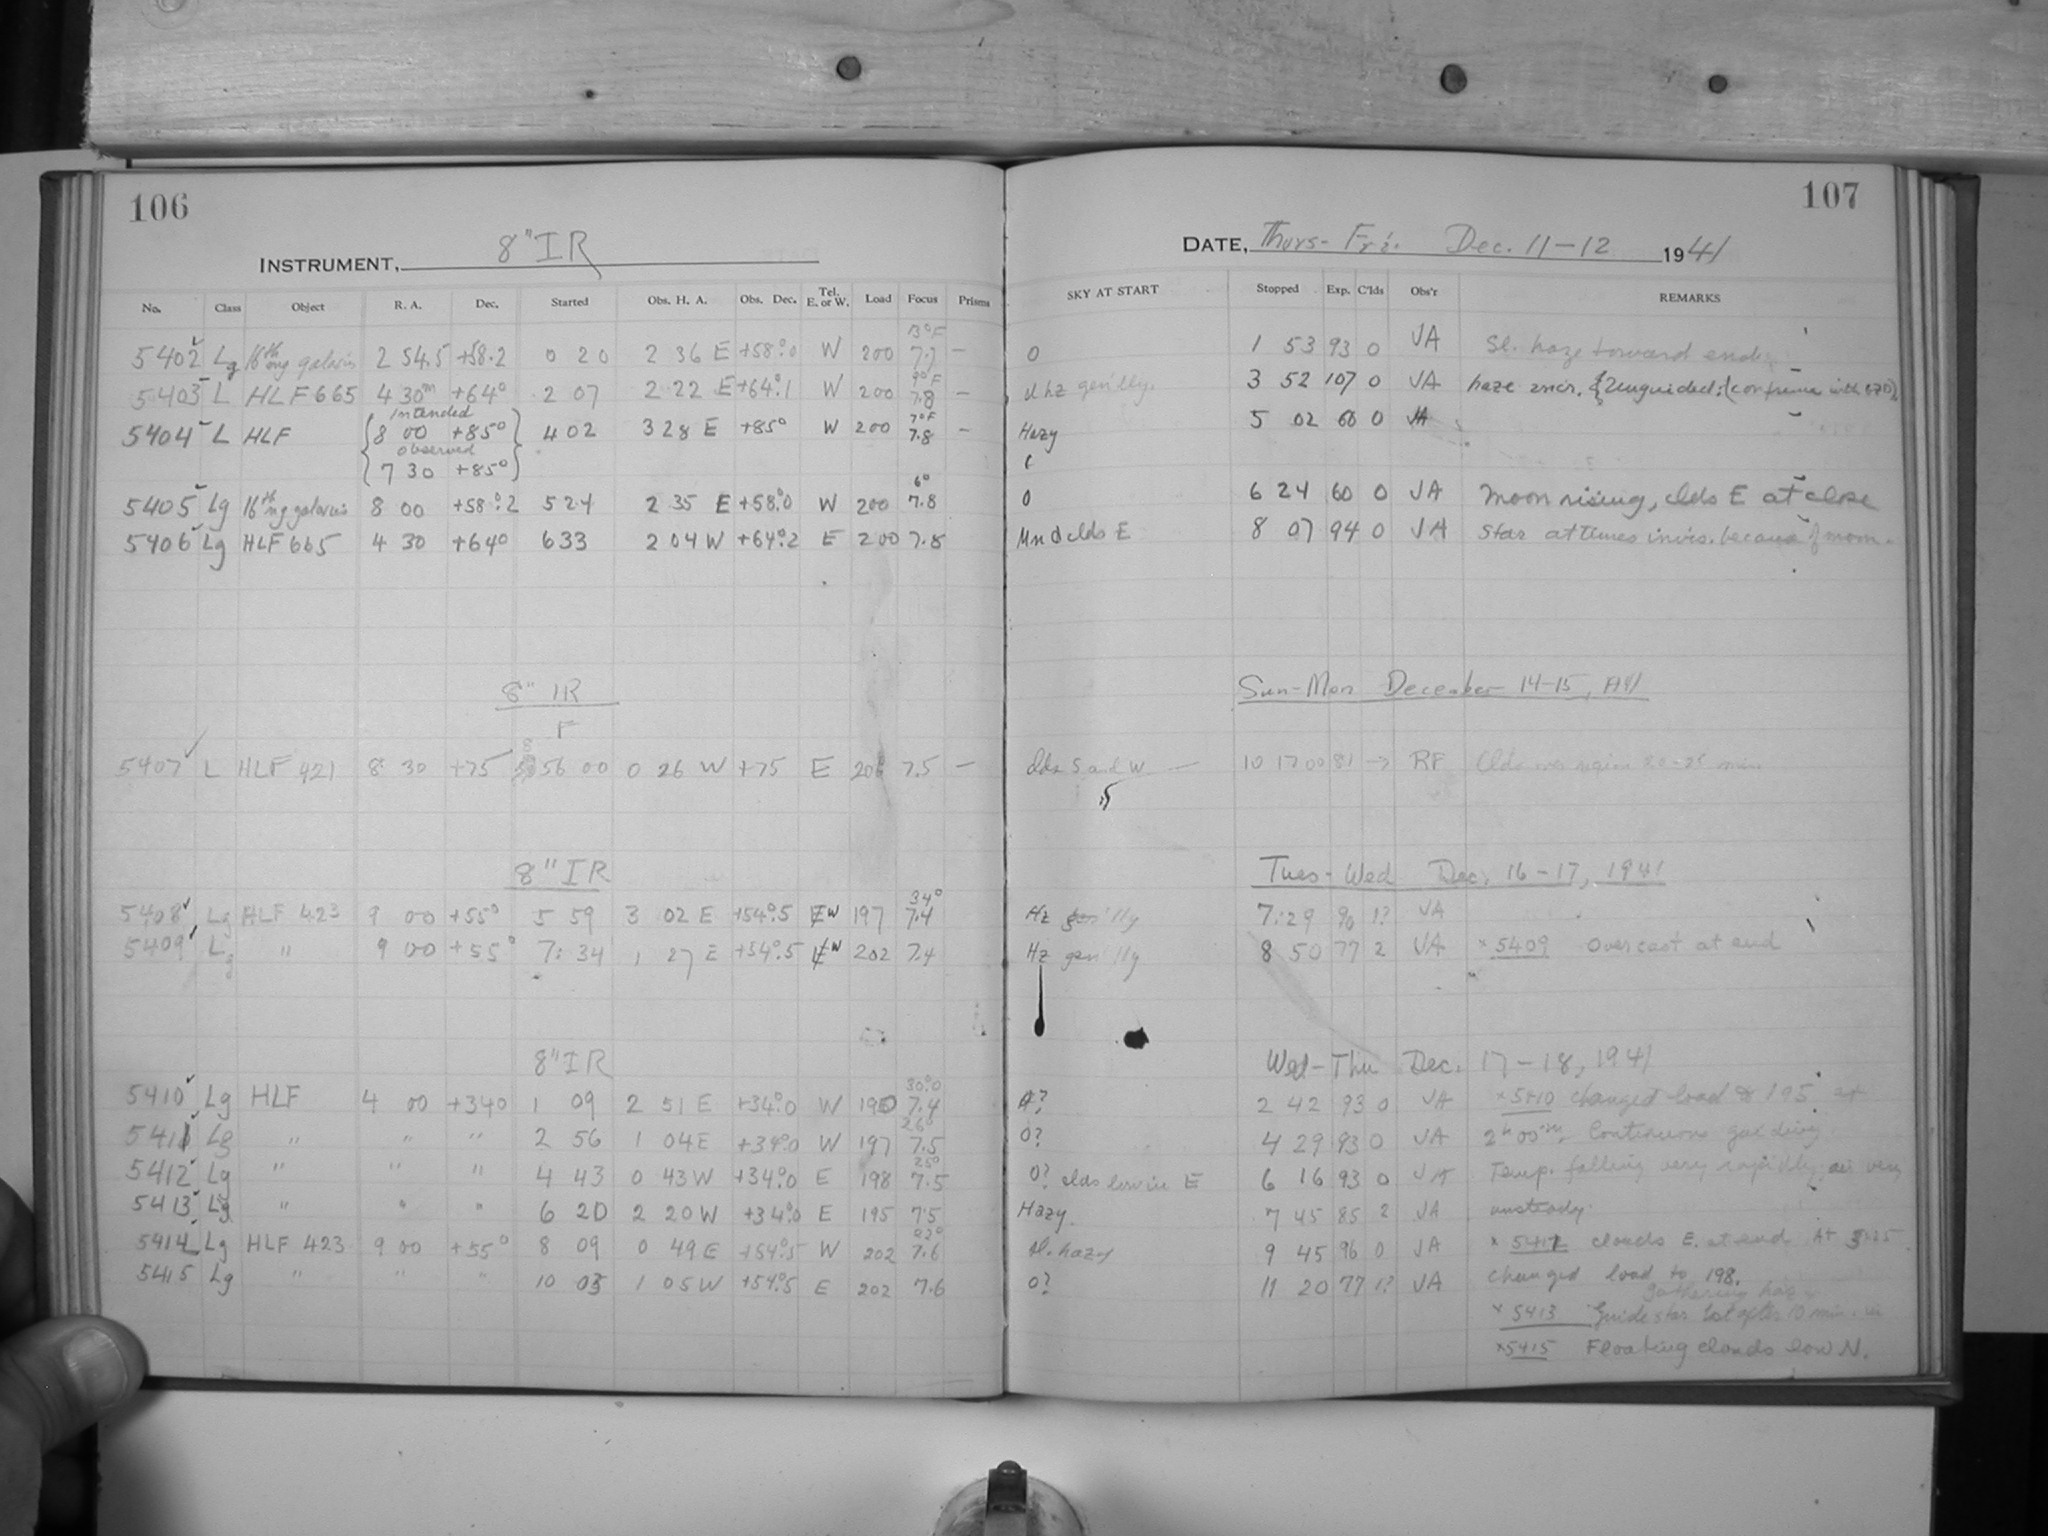 106
107
INSTRUMENT, 8" IR
DATE, Thurs- Fri. Dec. 11-12 1941
No. Class Object R. A. Dec. Started Obs. H. A. Obs. Dec. Tel. E. or W. Load Focus Prisms SKY AT START Stopped Exp. C'lds Obs'r REMARKS
13°F
5402 Lg 16th mg galaxies 2 54.5 +58.2 0 20 2 36 E +58°.0 W 200 7.7 — 0 1 53 93 0 JA Sl. haze toward end.
9°F
5403 L HLF 665 4 30m +64° 2 07 2 22 E +64°.1 W 200 7.8 — sl hz gen'lly. 3 52 107 0 JA haze incr. & unguided;
intended 7°F
5404 L HLF 8 00 +85° 4 02 3 28 E +85° W 200 7.8 — Hazy 5 02 60 0 JA
observed
7 30 +85°
6°
5405 Lg 16th mg galaxies 8 00 +58°.2 5 24 2 35 E +58°.0 W 200 7.8 0 6 24 60 0 JA Moon rising, clds E at close
5406 Lg HLF 665 4 30 +64° 6 33 2 04 W +64°.2 E 200 7.8 Mn & clds E 8 07 94 0 JA Star at times invis. because of moon.
8" IR Sun-Mon December 14-15, 1941
F
5407 L HLF 421 8 30 +75 8 56 00 0 26 W +75 E 200 7.5 — clds S and W — 10 17 00 81 → RF Clds 20-25 min
8" IR Tues- Wed Dec. 16-17, 1941
34°
5408 Lg HLF 423 9 00 +55° 5 59 3 02 E +54°.5 W 197 7.4 Hz gen'lly 7:29 90 1? JA
5409 Lg " 9 00 +55° 7:34 1 27 E +54°.5 W 202 7.4 Hz gen'lly 8 50 77 2 JA x 5409 Overcast at end
8" IR Wed-Thu Dec. 17-18, 1941
30°.0
5410 Lg HLF 4 00 +34° 1 09 2 51 E +34°.0 W 190 7.4 0? 2 42 93 0 JA x 5410 changed load to 195 at
26°
5411 Lg " " " 2 56 1 04 E +34°.0 W 197 7.5 0? 4 29 93 0 JA 2h 00m. Continuous guiding.
25°
5412 Lg " " " 4 43 0 43 W +34°.0 E 198 7.5 0? clds low in E 6 16 93 0 JA Temp. falling very rapidly; air very
5413 Lg " " " 6 20 2 20 W +34°.0 E 195 7.5 Hazy. 7 45 85 2 JA unsteady.
22°
5414 Lg HLF 423 9 00 +55° 8 09 0 49 E +54°.5 W 202 7.6 sl. hazy 9 45 96 0 JA x 5412 clouds E. at end At 5:25
5415 Lg " " " 10 03 1 05 W +54°.5 E 202 7.6 0? 11 20 77 1? JA changed load to 198.
gathering haze
x 5413 Guide star lost after 10 min. in
x 5415 Floating clouds low N.